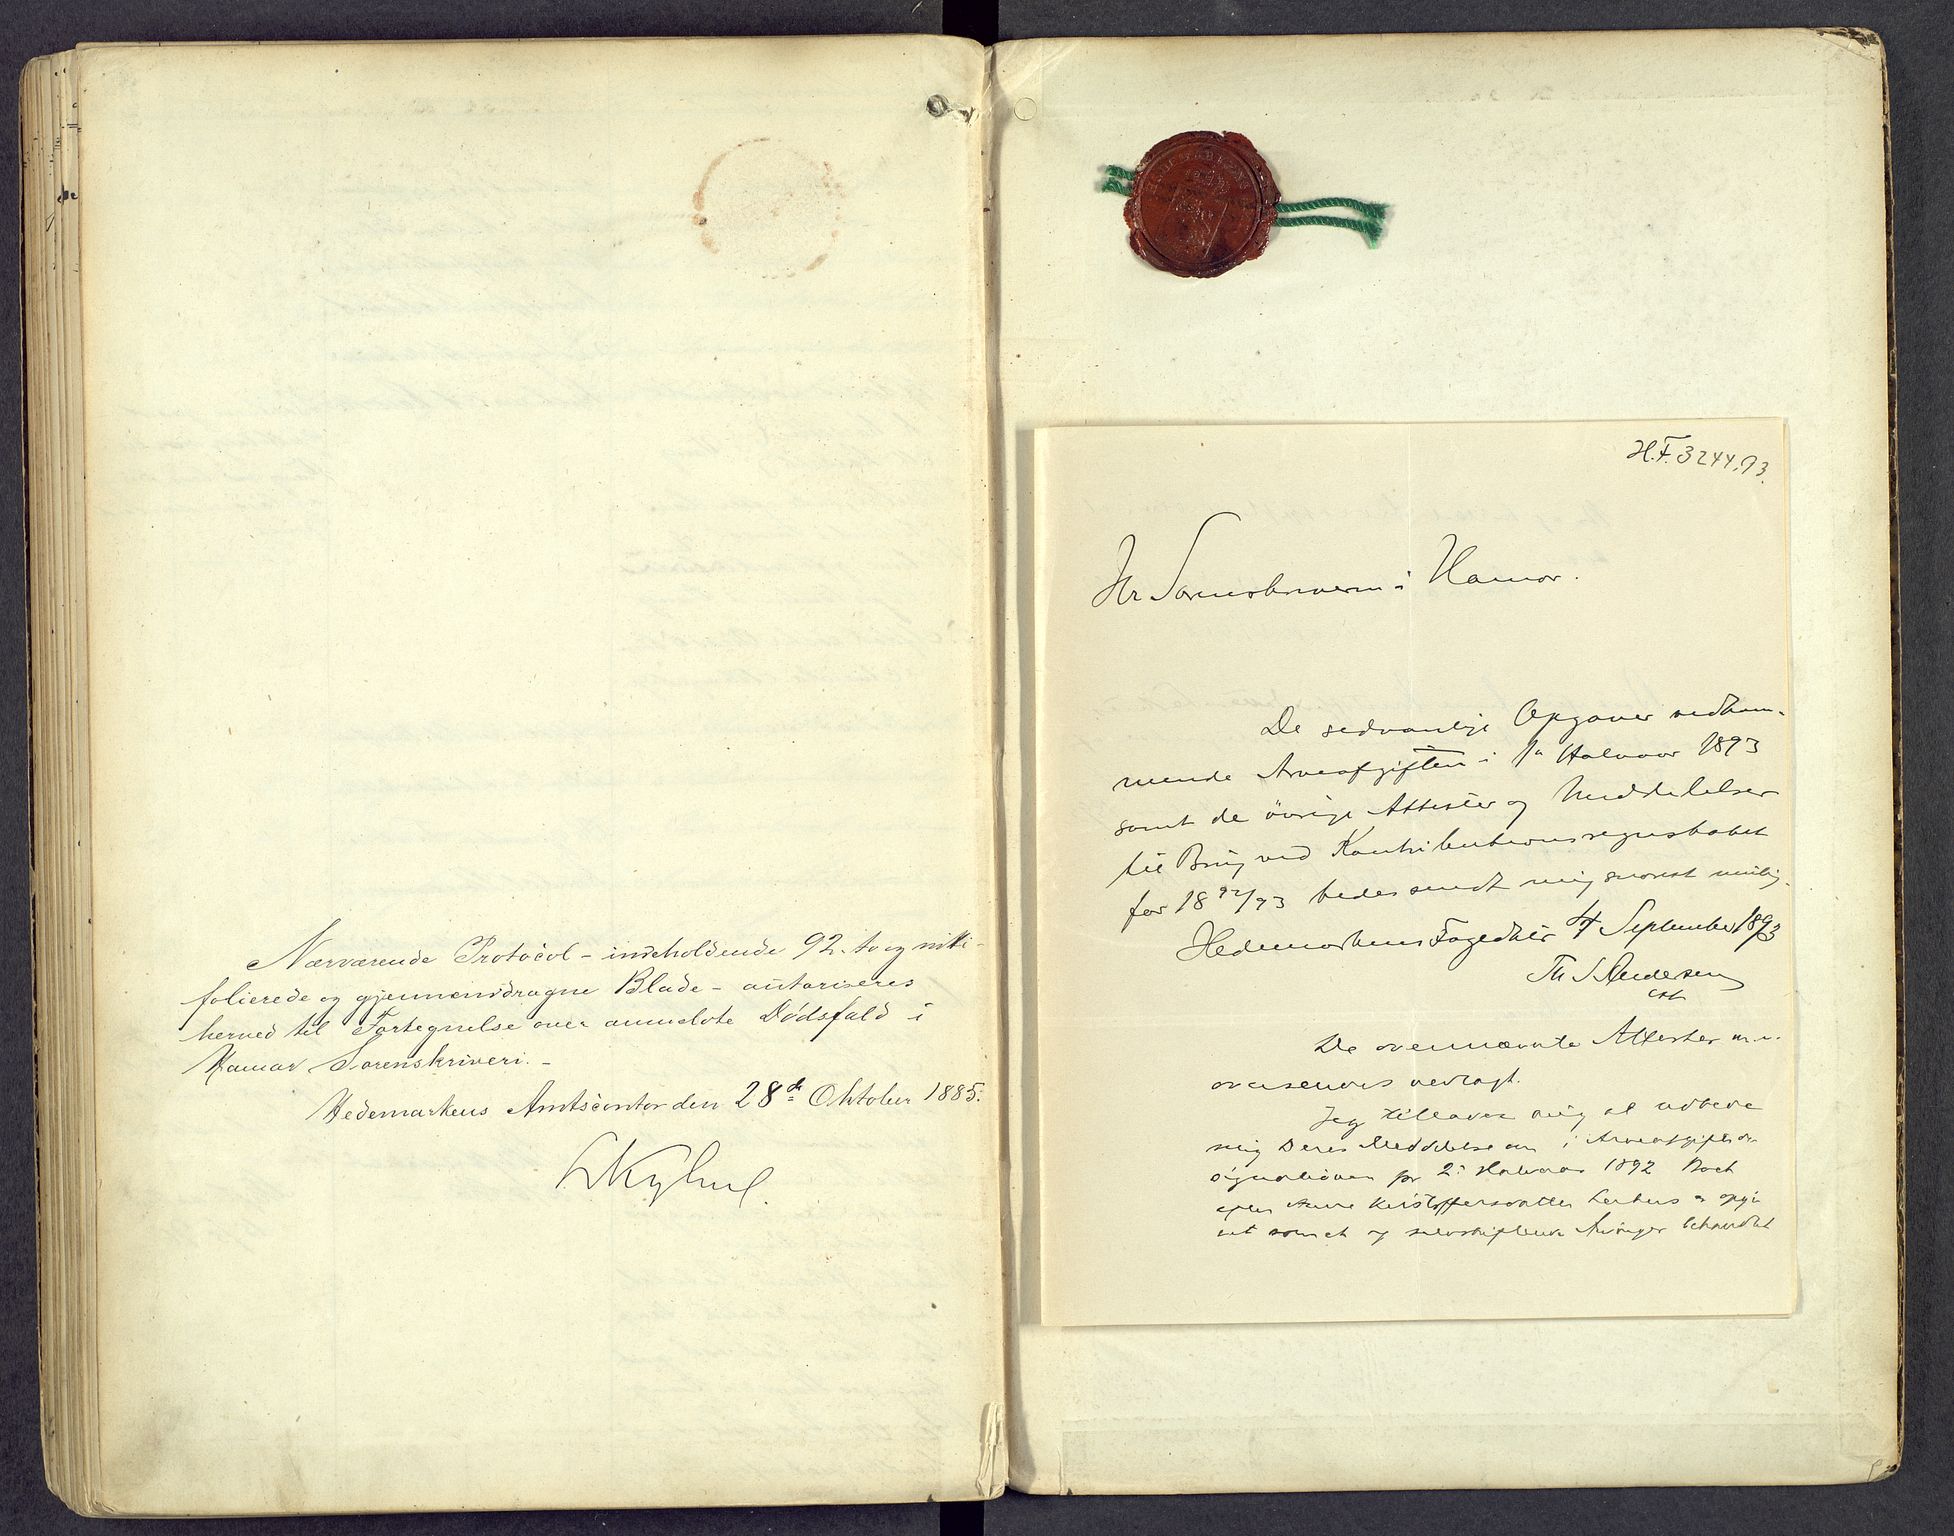 Nærværende Protocol - indeholdende 92. to og nitti -
folierede og gjennemdragne Blade - autoriseres
herved til Fortegnelse over anmeldte Dødsfald i
Hamar Sorenskriveri. -
Hedemarkens Amtscontor den 28de Oktober 1885.
H.F. 3244.93.
Hr Sorenskriveren i Hamar.
De sedvanlige Opgaver vedkom-
mende Arveafgiften i 1ste Halvaar 1893
samt de øvrige Attester og Meddelelser
til Brug ved Kontributionsregnskabet
for 1892/93 bedes sendt mig snarest mulig.
Hedemarkens Fogderi 4 September 1893
Th S. Andersen
cst
De ovennævnte Attester m.v.
oversendes vedlagt.
Jeg tillader mig at udbede
mig Deres Meddelelse om i Arveafgifts de-
signationen pr 2det Halvaar 1892 Boet
efter Anne Kristoffersdatter er opgi-
vet som et og selvskiftende Arvinger behandlet